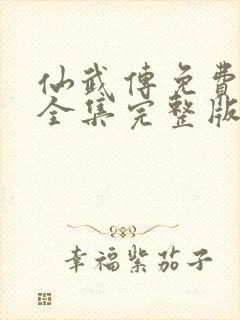 仙武傳免費
全集完整版
幸福紫茄子